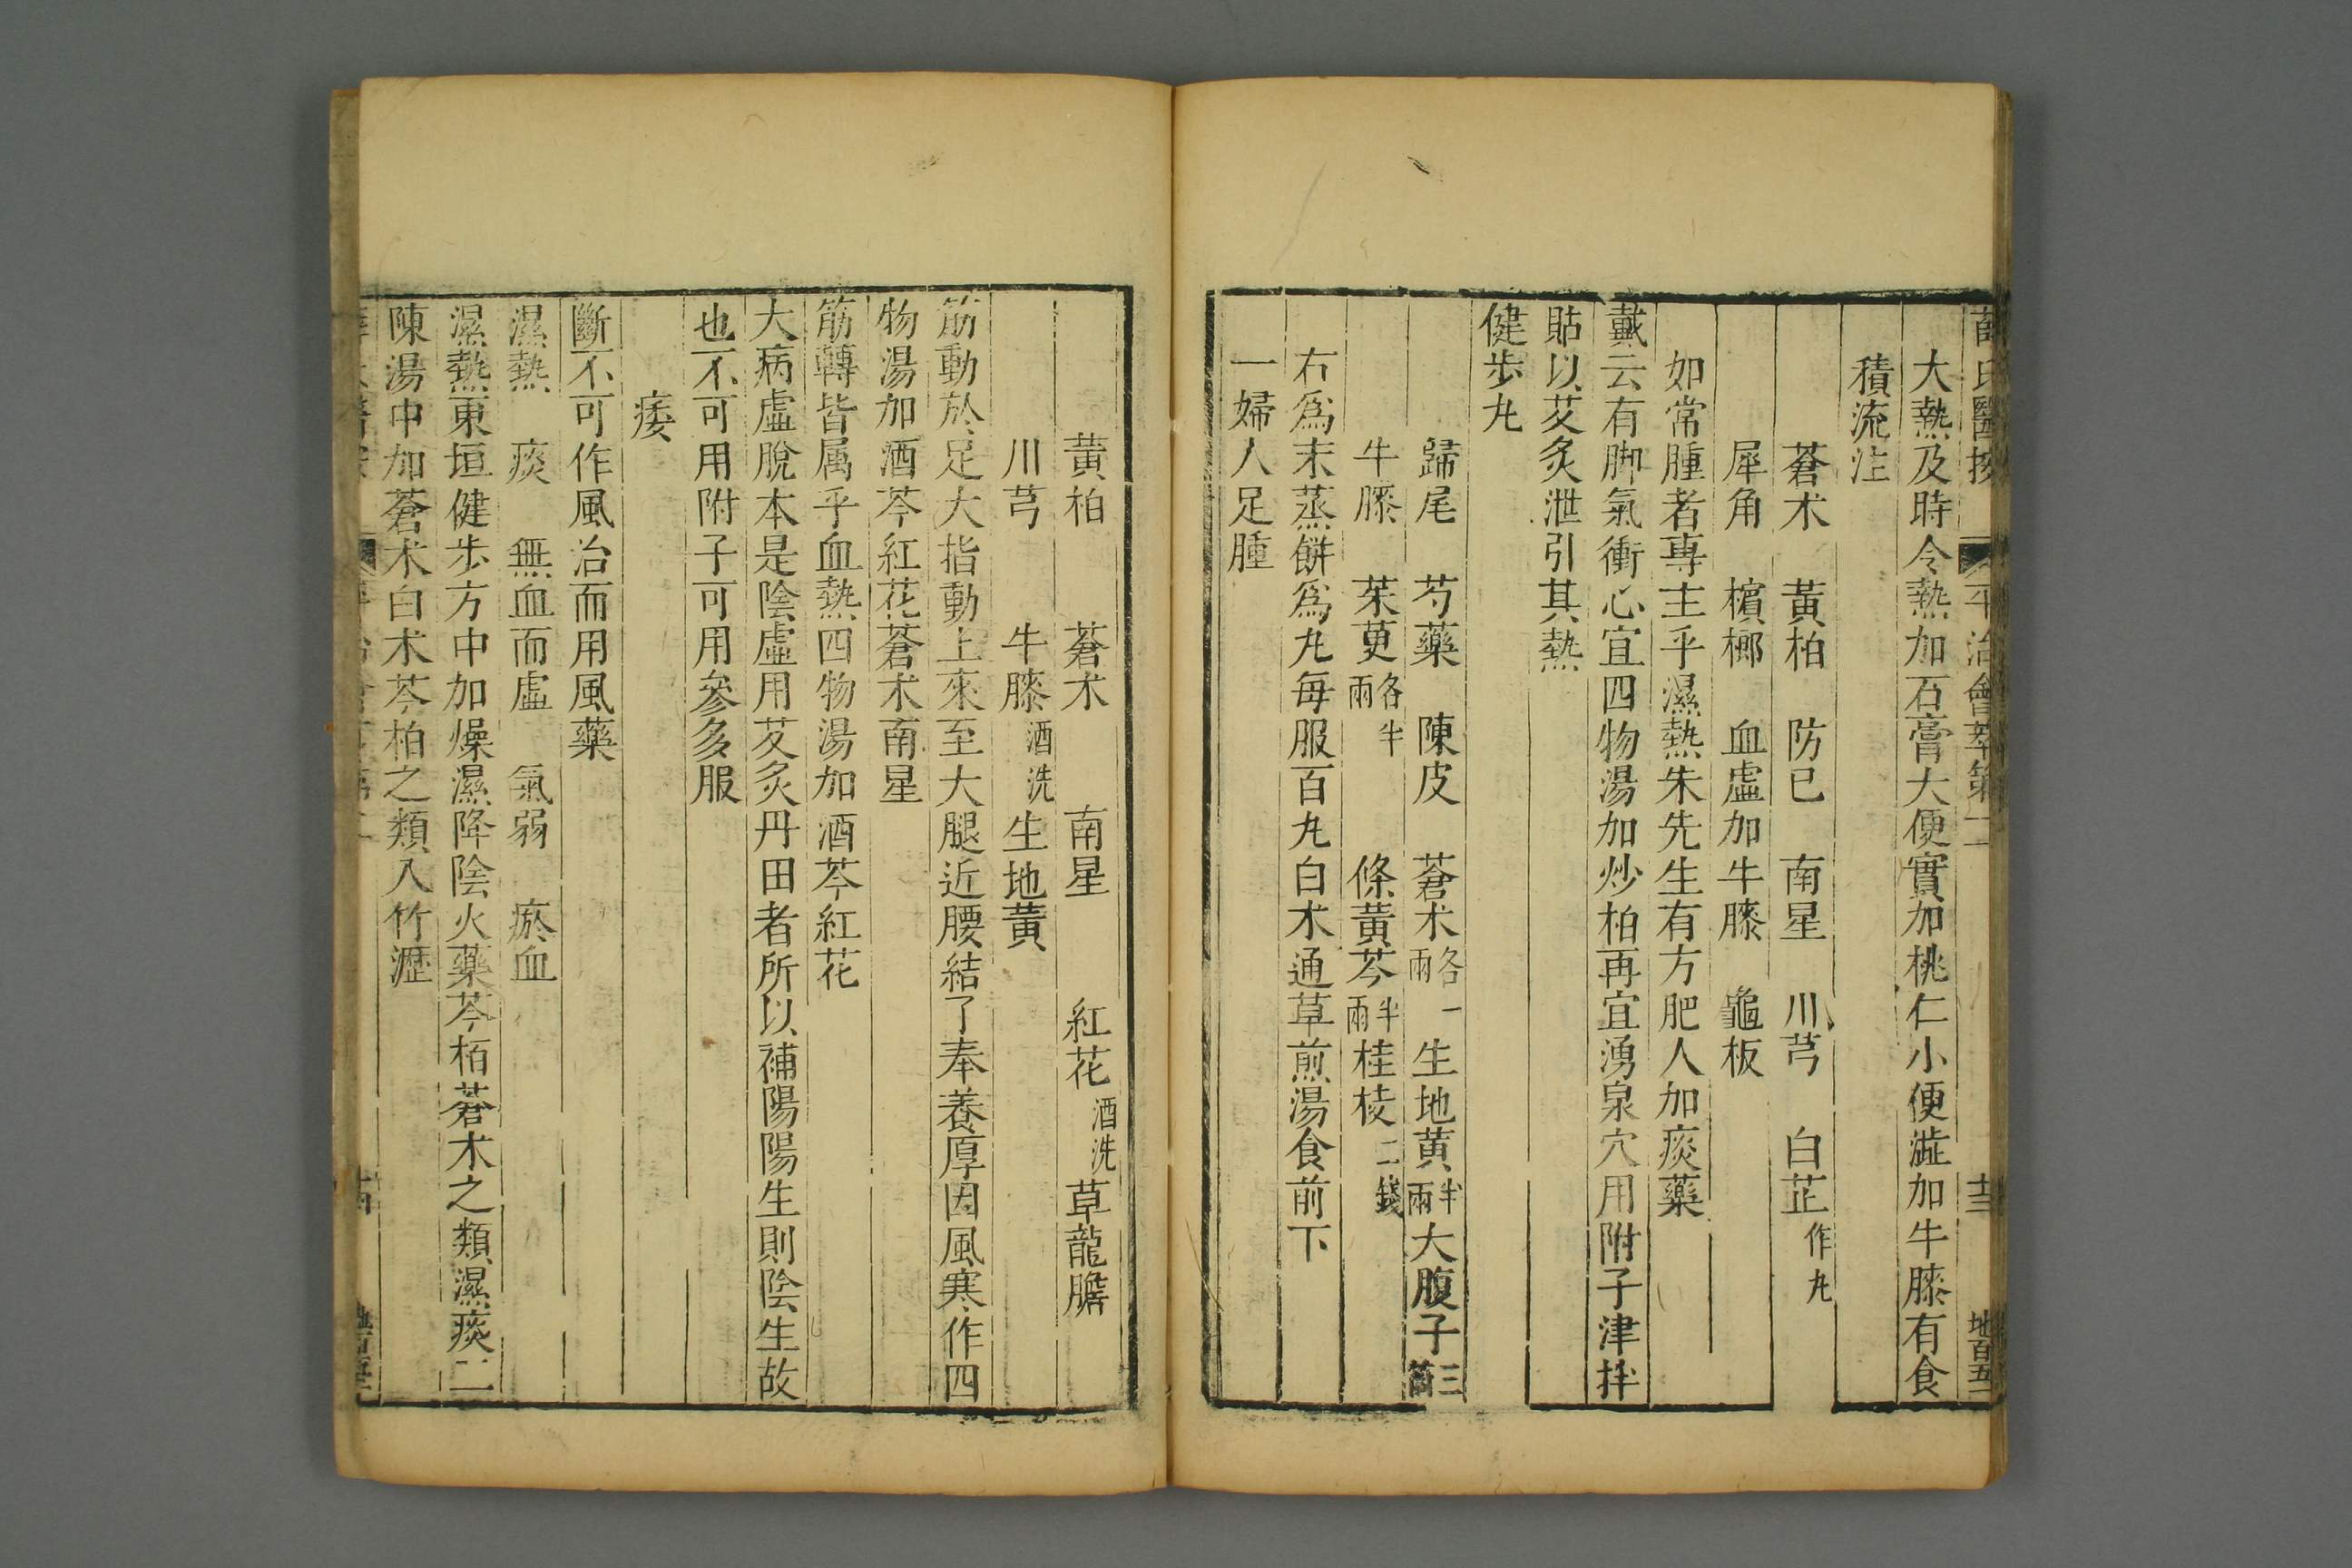 薛氏醫按 平治會萃卷二 十三 地百五一
大熱及時令熱加石膏大便實加桃仁小便澁加牛膝有食
積流注
蒼朮 黃柏 防已 南星 川芎 白芷作丸
犀角 檳榔 血虛加牛膝 龜板
如常腫者專主乎濕熱朱先生有方肥人加痰藥
戴云有脚氣衝心宜四物湯加炒柏再宜湧泉穴用附子津拌
貼以艾灸泄引其熱
健步丸
歸尾 芍藥 陳皮 蒼朮各一兩 生地黃半兩 大腹子三箇
牛膝 茱萸各半兩 條黃芩半兩 桂棱二錢
右爲末蒸餠爲丸每服百丸白朮通草煎湯食前下
一婦人足腫
黃柏 蒼朮 南星 紅花酒洗 草龍膽
川芎 牛膝酒洗 生地黃
筋動於足大指動上來至大腿近腰結了奉養厚因風寒作四
物湯加酒芩紅花蒼朮南星
筋轉皆属乎血熱四物湯加酒芩紅花
大病虛脫本是陰虛用艾灸丹田者所以補陽陽生則陰生故
也不可用附子可用參多服
痿
斷不可作風治而用風藥
濕熱 痰 無血而虛 氣弱 瘀血
濕熱東垣健步方中加燥濕降陰火藥芩栢蒼朮之類濕痰二
陳湯中加蒼朮白朮芩柏之類入竹瀝
十四